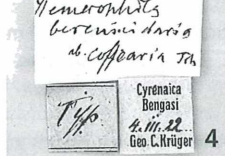 Hemerophila
berenicidaria
ab. coffearia Trh
Typ.
Cyrenaica
Bengasi
4.III.22
Geo.C.Krüger
4